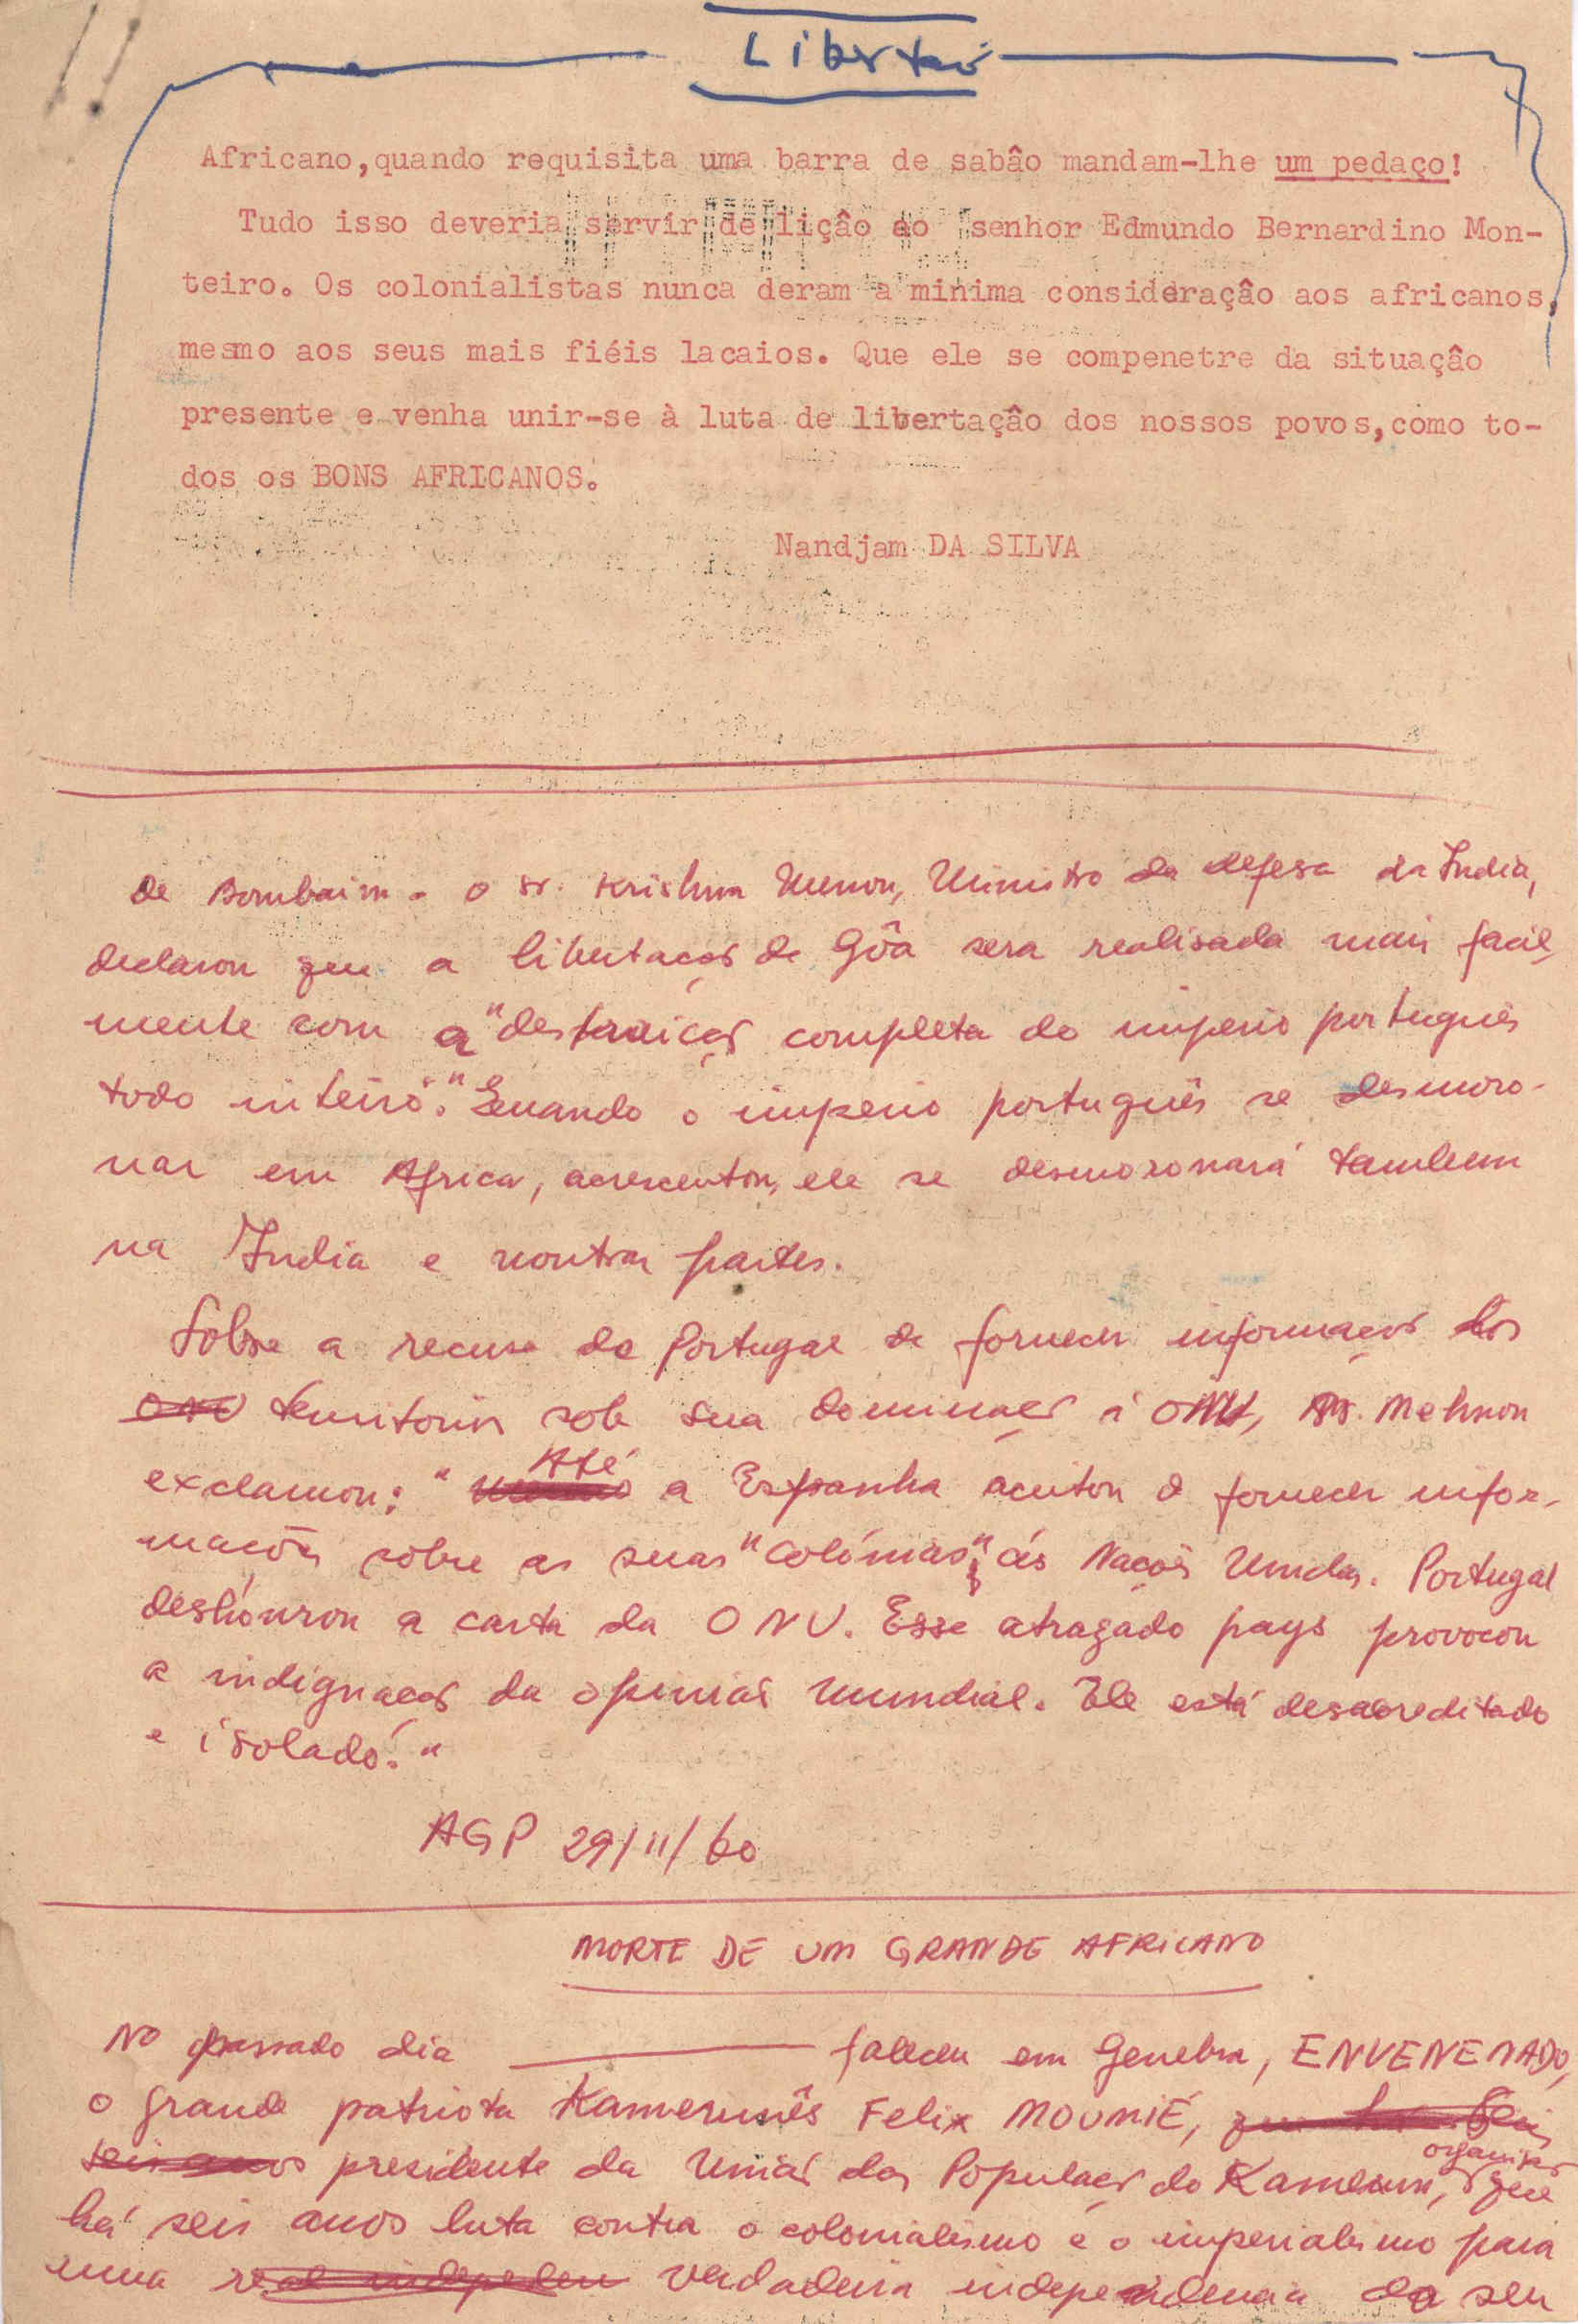 Libertação
Africano,quando requisita uma barra de sabâo mandam-lhe um pedaço!
Tudo isso deveria servir de liçâo ao senhor Edmundo Bernardino Mon-
teiro. Os colonialistas nunca deram a minima consideraçâo aos africanos,
mesmo aos seus mais fiéis lacaios. Que ele se compenetre da situaçâo
presente e venha unir-se à luta de libertaçâo dos nossos povos,como to-
dos os BONS AFRICANOS.
Nandjam DA SILVA
de Bombaim - O sr. Krishna Menon, Ministro da defesa da India,
declarou que a libertaçaõ de Gôa sera realisada mais facil-
mente com a "destruiçaõ completa do imperio português
todo inteiro." Quando o imperio português se desmoro-
nar em Africa, acrescentou, ele se desmoronará tambem
na India e noutras partes.
Sobre a recusa de Portugal de fornecer informaçoẽs dos
ONU territorios sob sua dominaçaõ á ONU, Mr. Mehnon
exclamou: " Até a Espanha aceitou o fornecer infor-
maçoẽs sobre as suas "colónias" ás Naçoẽs Unidas. Portugal
deshonrou a carta da ONU. Esse atrazado pays provocou
a indignaçaõ da opiniaõ mundial. Ele está desacreditado
e isolado."
AGP 29/11/60
MORTE DE UM GRANDE AFRICANO
No passado dia faleceu em Genebra, ENVENENADO,
o grande patriota Kamerunês Felix MOUMIÉ, que há seis
seis anos presidente da Uniaõ das Populaçoẽs do Kamerun, organisaçaõ que
há seis anos luta contra o colonialismo e o imperialismo para
uma real independen verdadeira independencia do seu